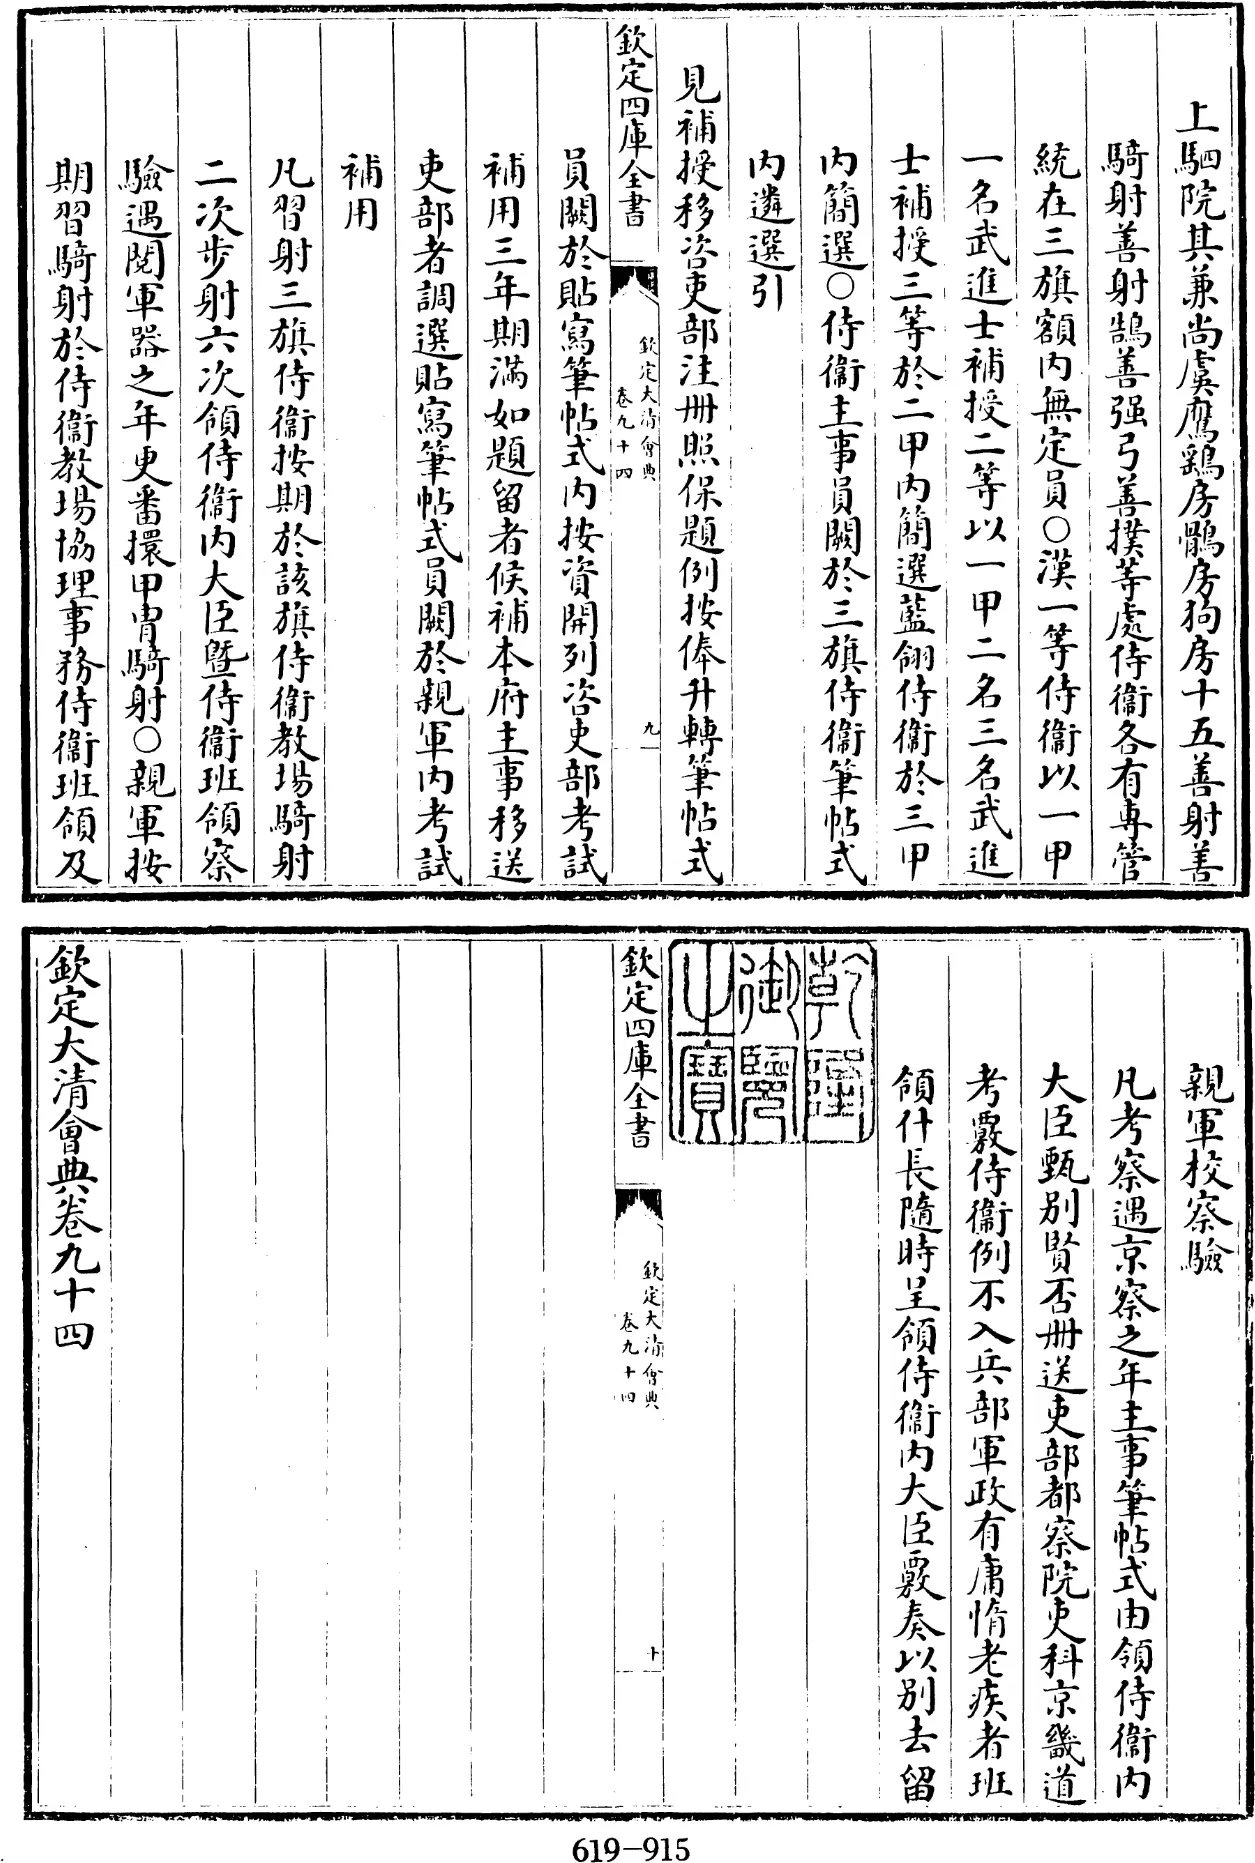 上駟院其兼尚虞鷹鷂房鶻房狗房十五善射善
騎射善射鵠善强弓善撲等處侍衞各有専管
統在三旗額内無定員○漢一等侍衞以一甲
一名武進士補授二等以一甲二名三名武進
士補授三等於二甲内簡選藍翎侍衞於三甲
内簡選○侍衞主事員闕於三旗侍衞筆帖式
内遴選引
見補授移咨吏部注冊照保題例按俸升轉筆帖式
欽定四庫全書
欽定大清會典
卷九十四
九
員闕於貼寫筆帖式内按資開列咨吏部考試
補用三年期滿如題留者候補本府主事移送
吏部者調選貼寫筆帖式員闕於親軍内考試
補用
凡習射三旗侍衞按期於該旗侍衞教場騎射
二次步射六次領侍衞内大臣曁侍衞班領察
驗遇閱軍器之年更番擐甲胄騎射○親軍按
期習騎射於侍衞教場協理事務侍衞班領及
親軍校察驗
凡考察遇京察之年主事筆帖式由領侍衞内
大臣甄别賢否冊送吏部都察院吏科京畿道
考覈侍衞例不入兵部軍政有庸惰老疾者班
領什長隨時呈領侍衞内大臣覈奏以别去留
乾隆
御覽
之寶
欽定四庫全書
欽定大清會典
卷九十四
十
欽定大清會典卷九十四
619-915